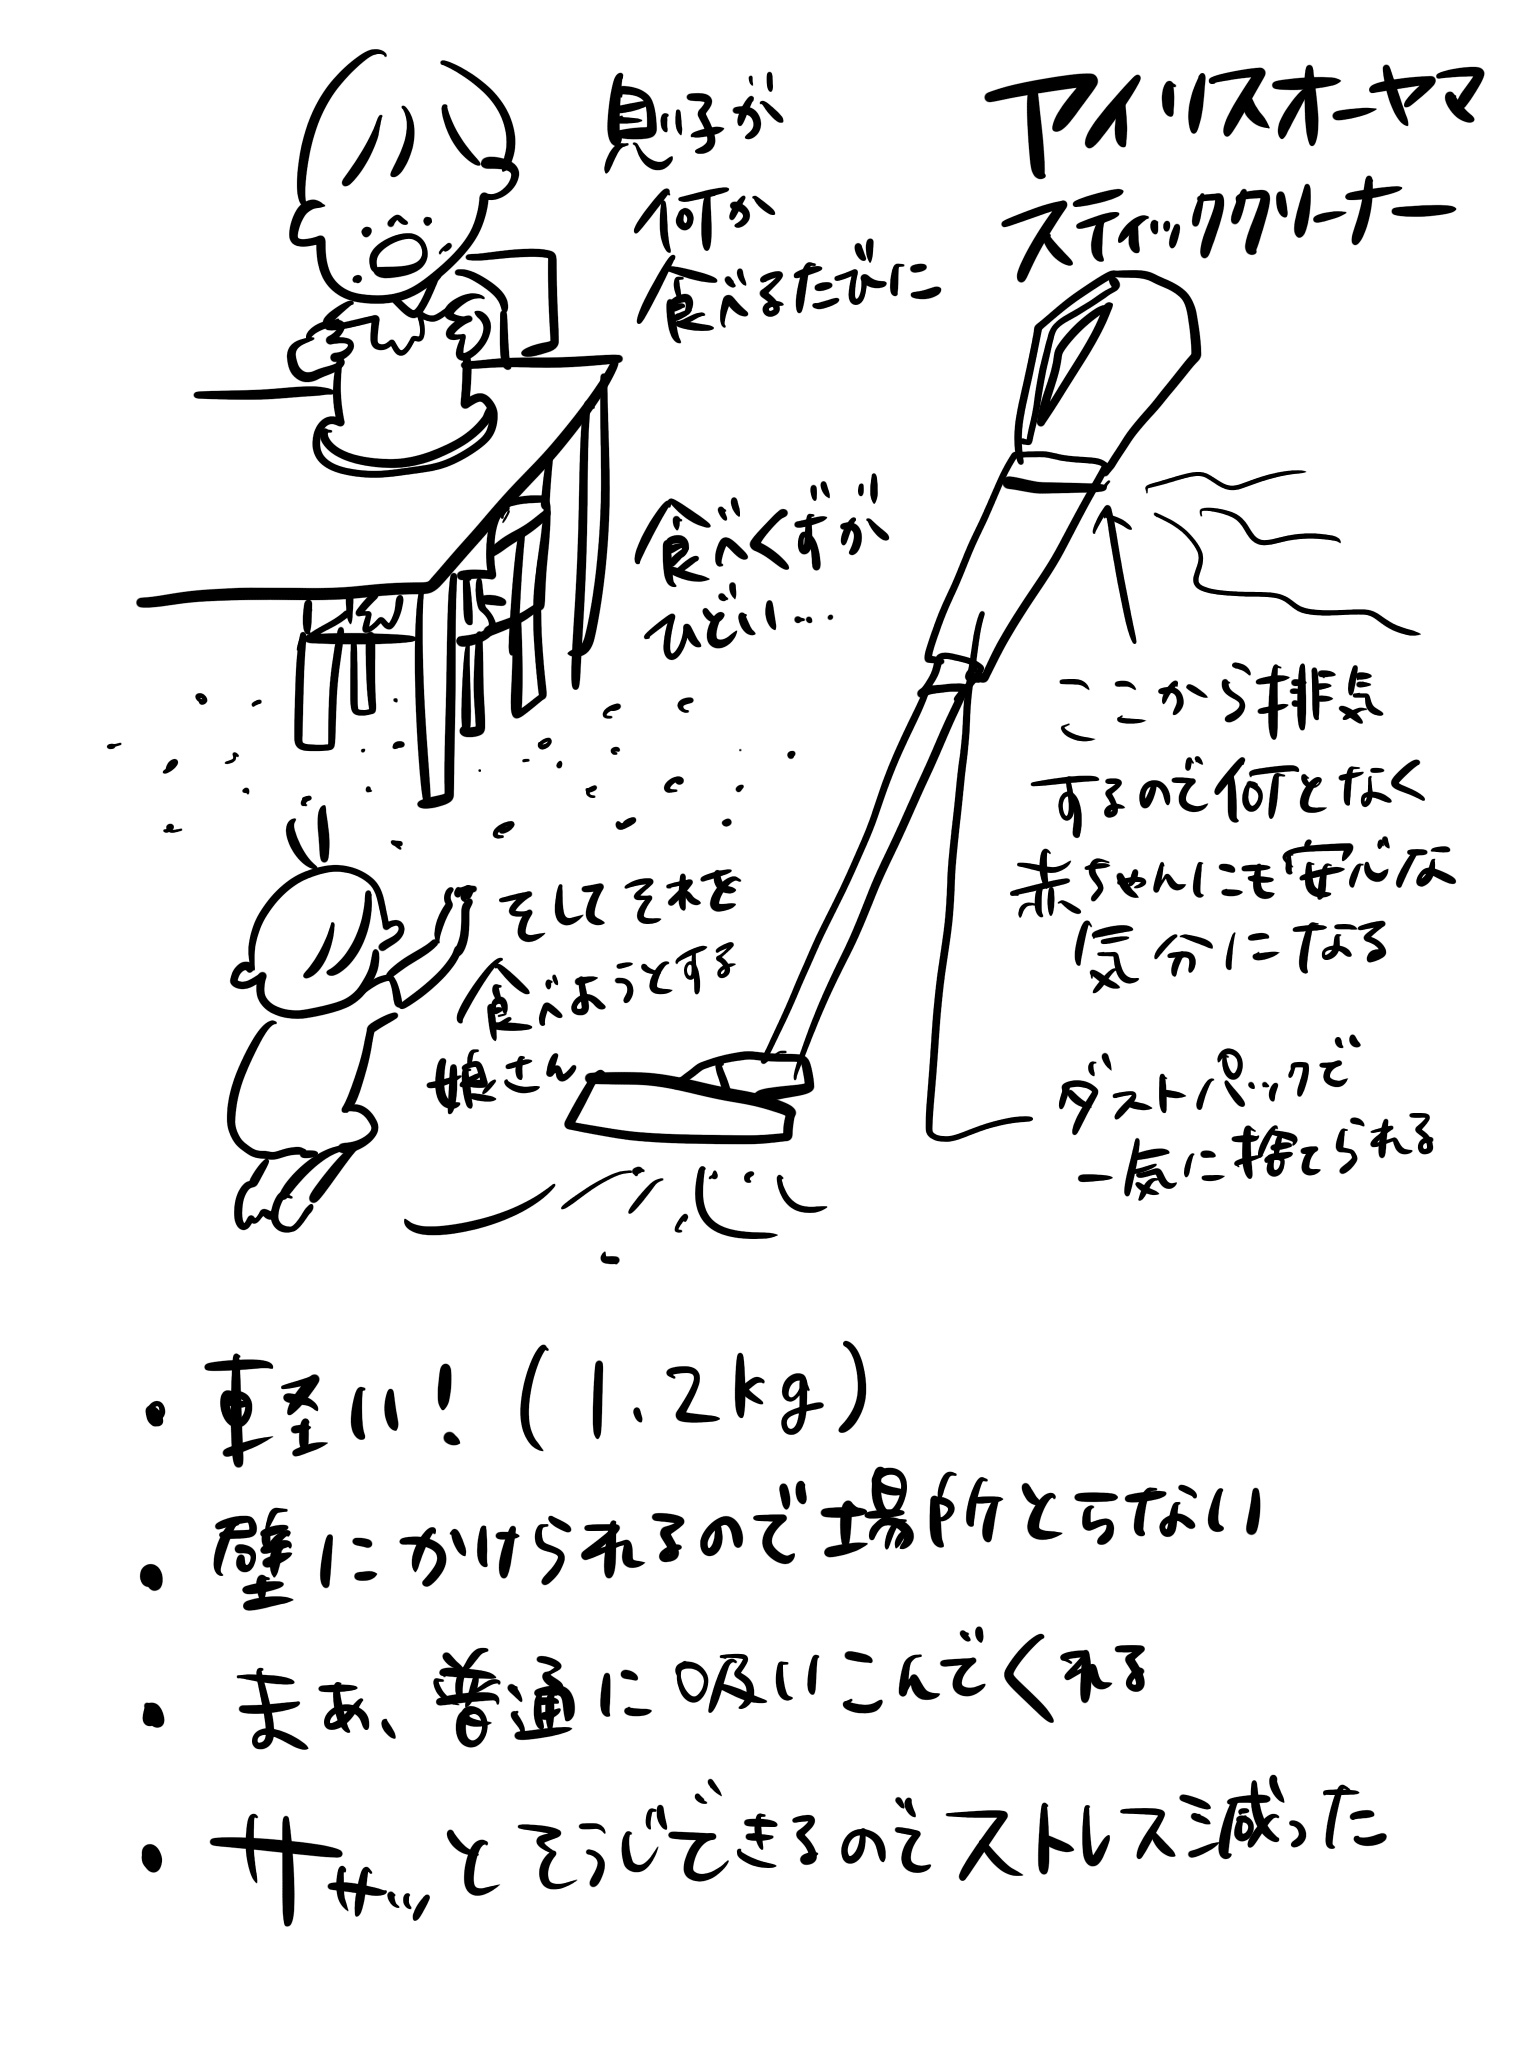 アイリスオーヤマ
スティッククリーナー
息子が
何か
食べるたびに
食べくずが
ひどい…
そしてそれを
食べようとする
娘さん
ここから排気
するので何となく
赤ちゃんにも安心な
気分になる
ダストパックで
一気に捨てられる
・軽い！(1.2kg)
・壁にかけられるので場所とらない
・まぁ、普通に吸いこんでくれる
・サササッとそうじできるのでストレス減った